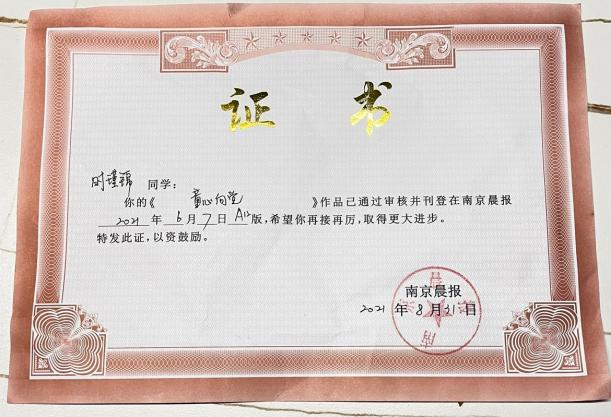 证书
时瑾瑞 同学：
你的《 童心向党 》作品已通过审核并刊登在南京晨报
2021 年 6 月 7 日 A12 版，希望你再接再厉，取得更大进步。
特发此证，以资鼓励。
南京晨报
2021 年 8 月 31 日